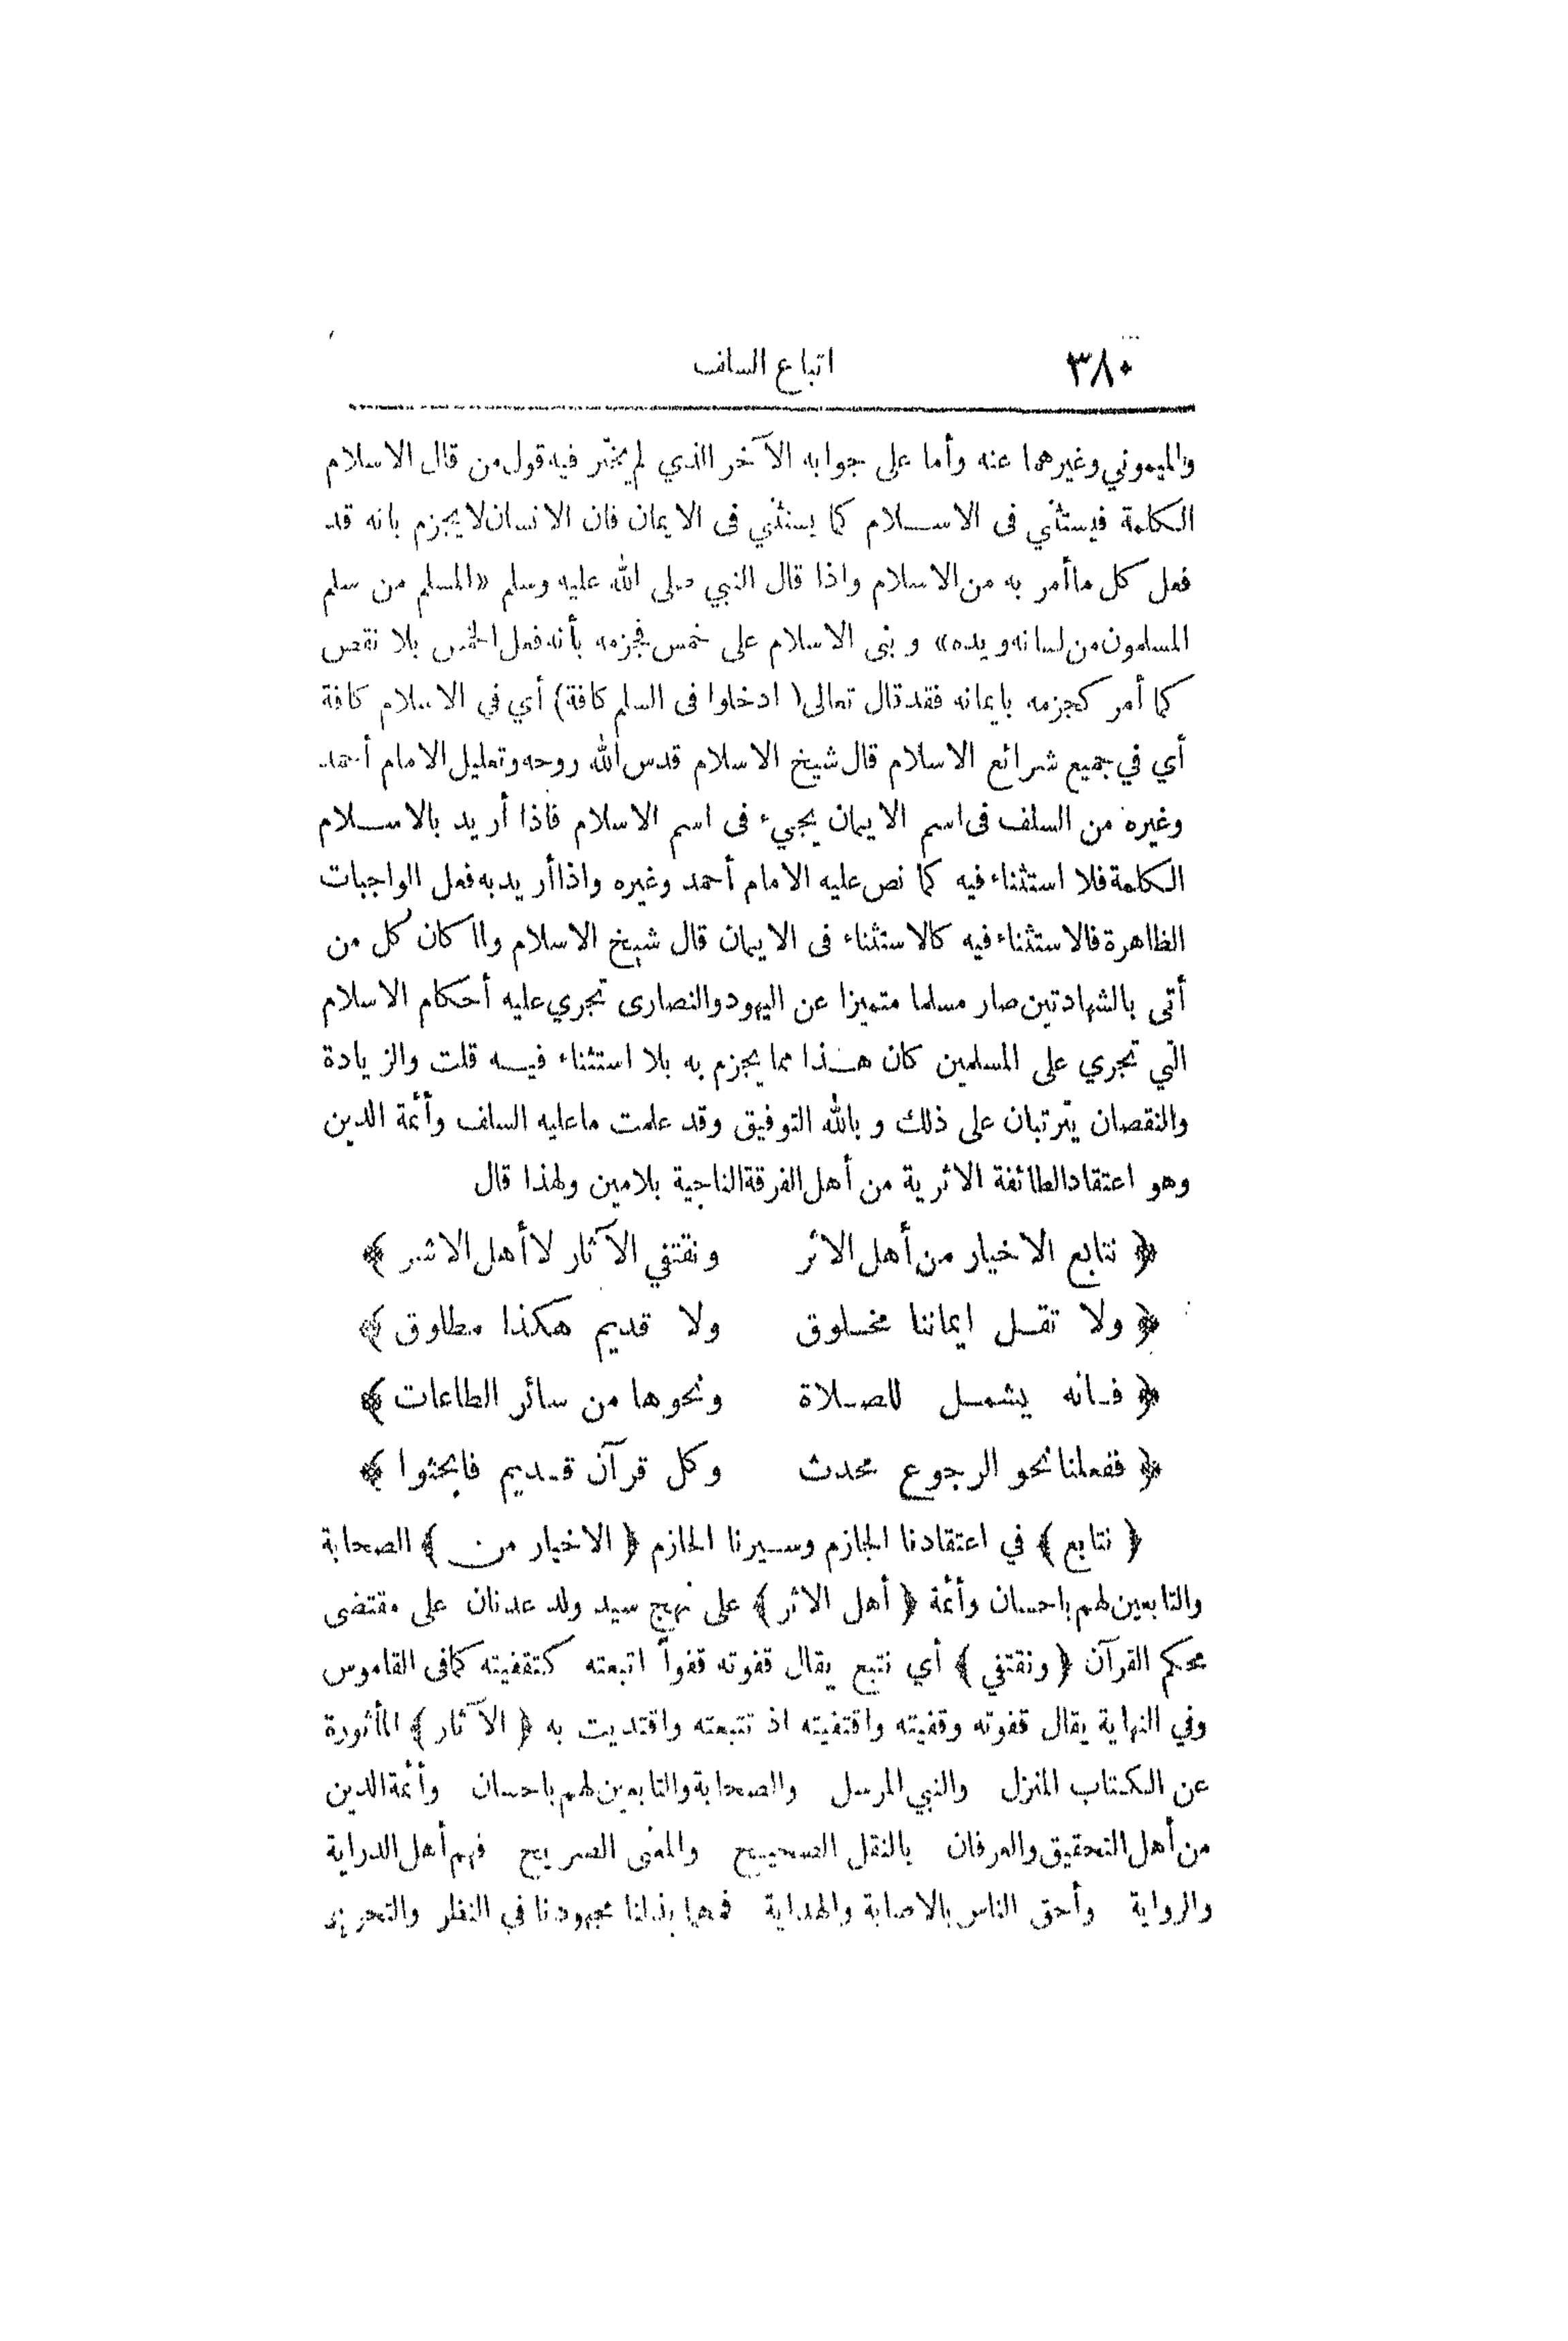 ٣٨٠ اتباع السلف
والميموني وغيرهما عنه وأما على جوابه الآخر الذي لم يختر فيه قول من قال الاسلام
الكلمة فيستثني فى الاسلام كما يستثني فى الايمان فان الانسان لا يجزم بانه قد
فعل كل ما أمر به من الاسلام واذا قال النبي صلى الله عليه وسلم «المسلم من سلم
المسلمون من لسانه ويده» وبنى الاسلام على خمس فجزمه بأنه فعل الخمس بلا نقص
كما أمر كجزمه بايمانه فقد قال تعالى ( ادخلوا فى السلم كافة) أي في الاسلام كافة
أي في جميع شرائع الاسلام قال شيخ الاسلام قدس الله روحه وتعليل الامام أحمد
وغيره من السلف فى اسم الايمان يجيء فى اسم الاسلام فاذا أريد بالاسلام
الكلمة فلا استثناء فيه كما نص عليه الامام أحمد وغيره واذا أريد به فعل الواجبات
الظاهرة فالاستثناء فيه كالاستثناء فى الايمان قال شيخ الاسلام ولما كان كل من
أتى بالشهادتين صار مسلما متميزا عن اليهود والنصارى تجري عليه أحكام الاسلام
التي تجري على المسلمين كان هذا مما يجزم به بلا استثناء فيه قلت والزيادة
والنقصان يترتبان على ذلك وبالله التوفيق وقد علمت ما عليه السلف وأئمة الدين
وهو اعتقاد الطائفة الاثرية من أهل الفرقة الناجية بلا مين ولهذا قال
﴿ نتابع الاخيار من أهل الاثر ونقتفي الآثار لا أهل الاشر ﴾
﴿ ولا تقل ايماننا مخلوق ولا قديم هكذا مطلوق ﴾
﴿ فانه يشمل للصلاة ونحوها من سائر الطاعات ﴾
﴿ ففعلنا نحو الرجوع محدث وكل قرآن قديم فابحثوا ﴾
﴿ نتابع ﴾ في اعتقادنا الجازم وسيرنا الحازم ﴿ الاخيار من ﴾ الصحابة
والتابعين لهم باحسان وأئمة ﴿ أهل الاثر ﴾ على نهج سيد ولد عدنان على مقتضى
محكم القرآن ﴿ ونقتفي ﴾ أي نتبع يقال قفوته قفواً اتبعته كتقفيته كما فى القاموس
وفي النهاية يقال قفوته وقفيته واقتفيته اذ تتبعته واقتديت به ﴿ الآثار ﴾ المأثورة
عن الكتاب المنزل والنبي المرسل والصحابة والتابعين لهم باحسان وأئمة الدين
من أهل التحقيق والعرفان بالنقل الصحيح والمعنى الصريح فهم أهل الدراية
والرواية وأحق الناس بالاصابة والهداية فمهما بذلنا مجهودنا في النظر والتحرير